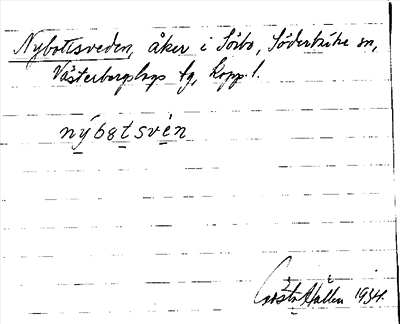 Nybotesveden, åker i Sörbo, Söderbärke sn,
Västerbergslags fg, Kopp. l.
nýbotsvèn
Gösta Hallén 1934.